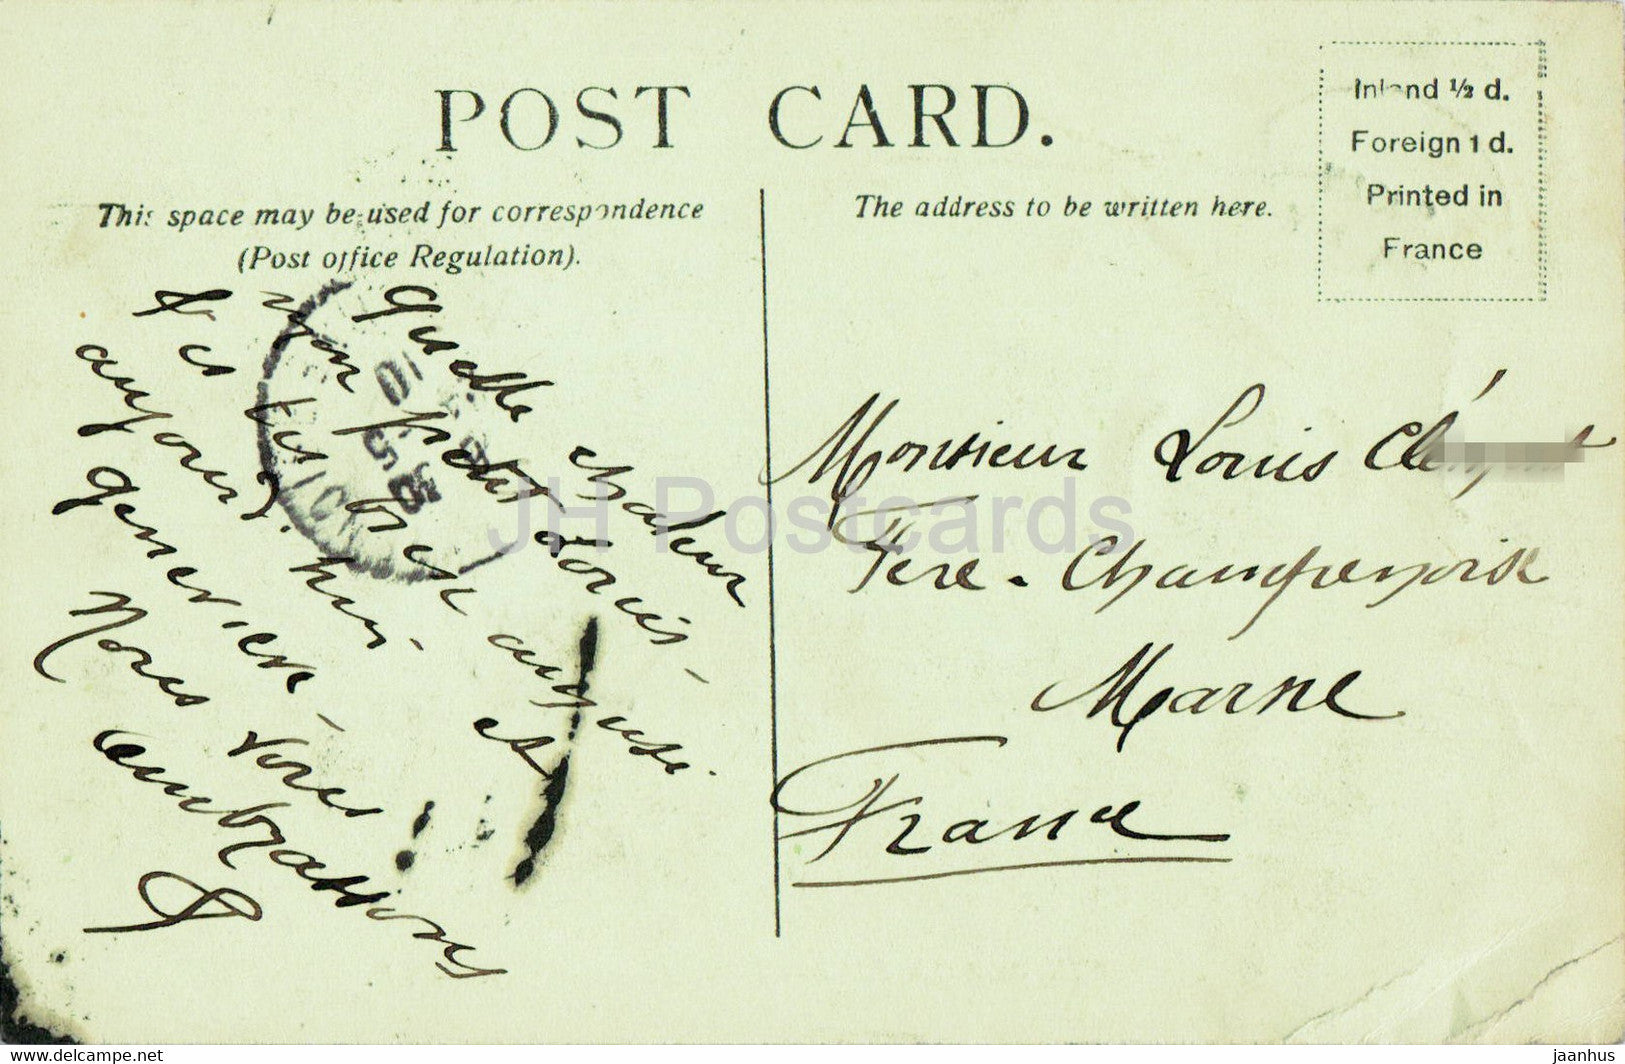 POST CARD.
This space may be used for correspondence
(Post office Regulation).
The address to be written here.
Inland ½ d.
Foreign 1 d.
Printed in
France
Quelle chaleur
Mon petit Louis -
et
aujourd'hui -
Geneviève -
Nous vous
embrassons
Monsieur Louis Clé
Fère-Champenoise
Marne
France
JH Postcards
www.delcampe.net
jaanhus